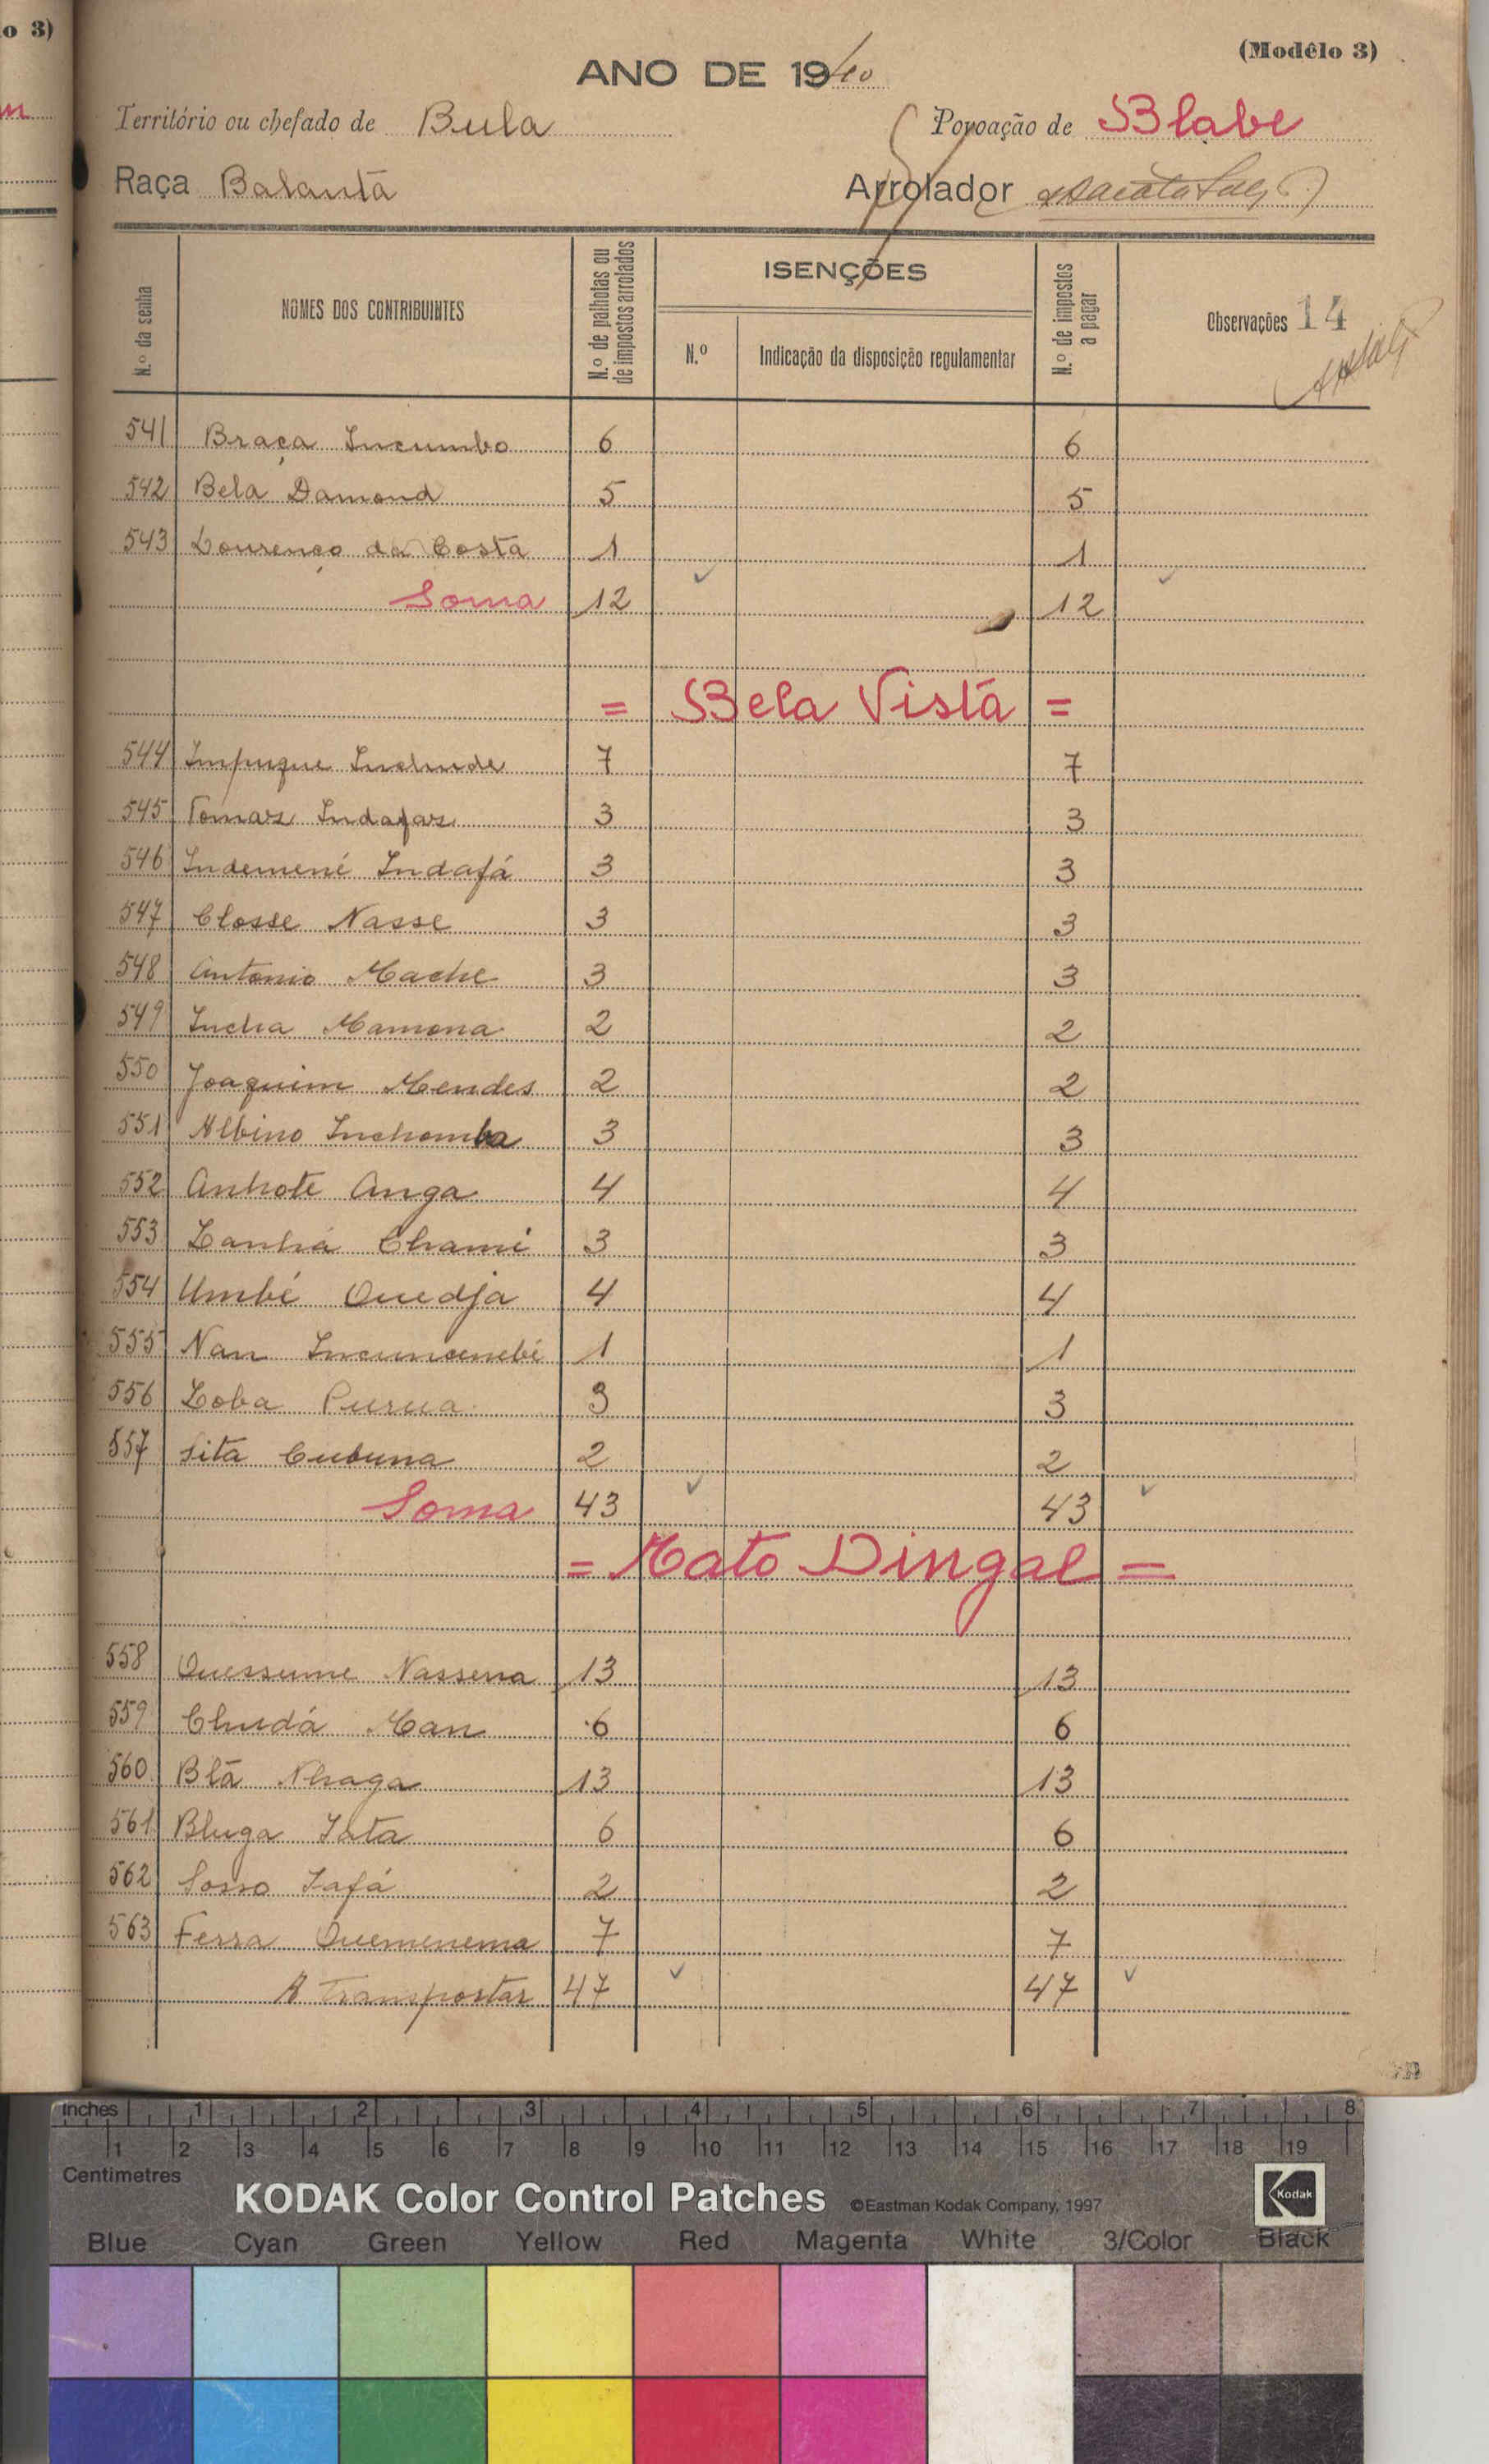 o 3)
(Modêlo 3)
ANO DE 1940
Território ou chefado de Bula
Povoação de Blabe
Raça Balanta
Arrolador
N.º da senha
NOMES DOS CONTRIBUINTES
N.º de palhotas ou de impostos arrolados
ISENÇÕES
N.º
Indicação da disposição regulamentar
N.º de impostos a pagar
Observações 14
541 Braça Incumbo 6 6
542 Bela Damond 5 5
543 Lourenço da Costa 1 1
Soma 12 12
= Bela Vista =
544 Impuque Inclunde 7 7
545 Tomaz Indafaz 3 3
546 Indemené Indafá 3 3
547 Closse Nasse 3 3
548 Antonio Mache 3 3
549 Incha Mamona 2 2
550 Joaquim Mendes 2 2
551 Albino Inchomba 3 3
552 Anhote Anga 4 4
553 Zanhá Chami 3 3
554 Umbé Quedja 4 4
555 Nan 1 1
556 Loba Purua 3 3
557 Sita Cubuna 2 2
Soma 43 43
= Mato Dingal =
558 Quessume Nassena 13 13
559 Chudá Man 6 6
560 Blã Nhaga 13 13
561 Bluga Iata 6 6
562 Sosso Iafá 2 2
563 Ferra Quemenema 7 7
A transportar 47 47
Inches 1 2 3 4 5 6 7 8
1 2 3 4 5 6 7 8 9 10 11 12 13 14 15 16 17 18 19
Centimetres
KODAK Color Control Patches ©Eastman Kodak Company, 1997
Kodak
Blue Cyan Green Yellow Red Magenta White 3/Color Black